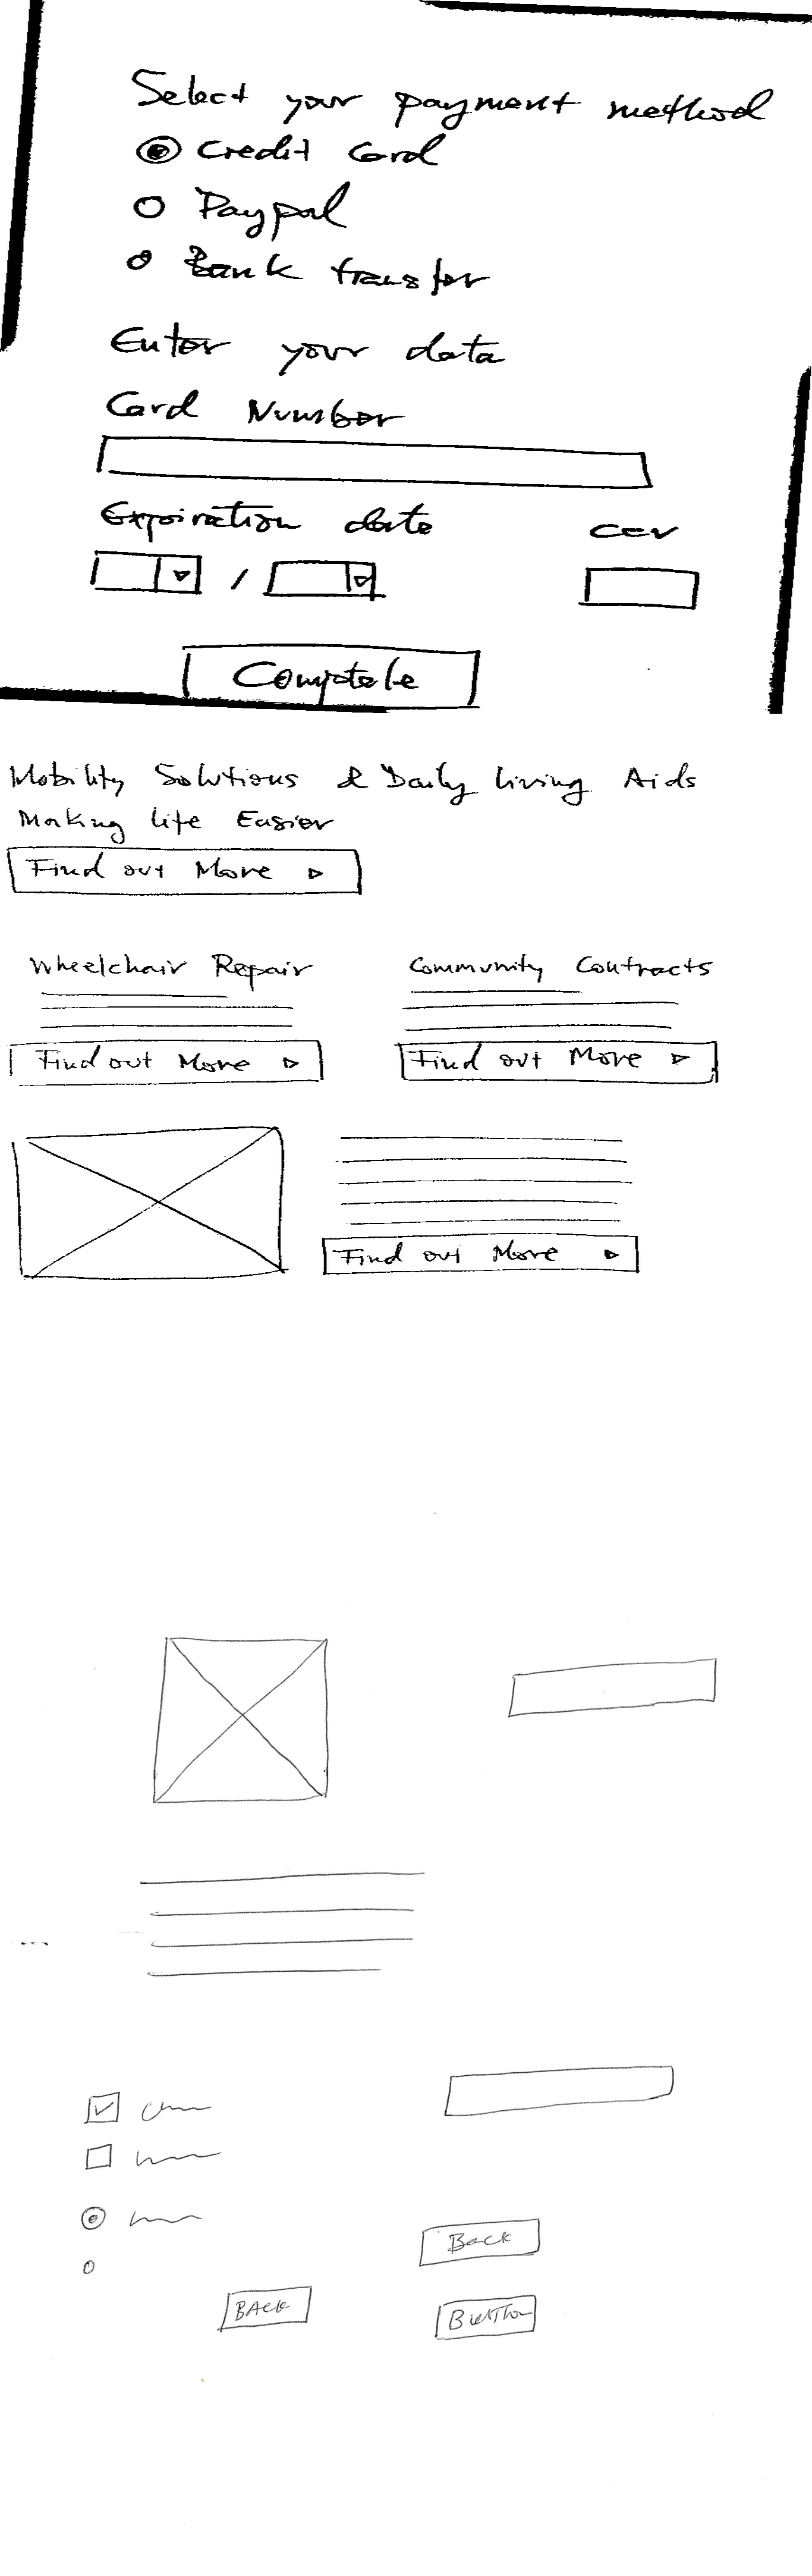 Select your payment method
Credit Card
Paypal
Bank transfer
Enter your data
Card Number
Expiration date ccv
/
Complete
Mobility Solutions & Daily Living Aids
Making Life Easier
Find out More
Wheelchair Repair Community Contracts
Find out More Find out More
Find out More
Back
BACK
Button